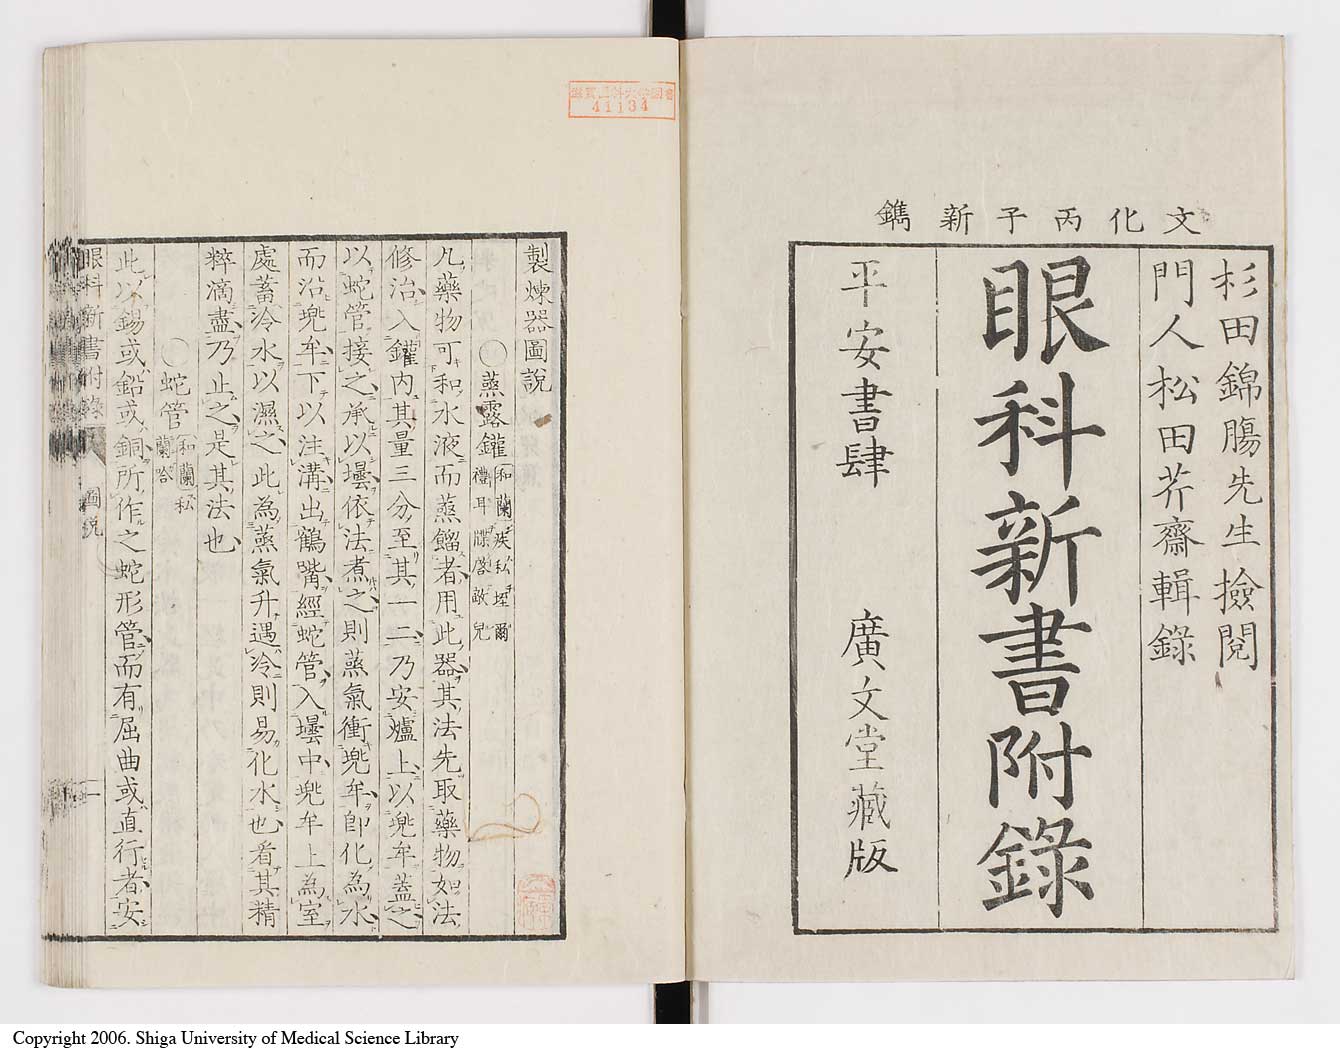 文化丙子新鐫
杉田錦膓先生撿閲
門人松田芥齋輯錄
眼科新書附錄
平安書肆 廣文堂藏版
滋賀医科大学図書
41134
製煉器圖說
○蒸露鑵 和蘭
凡藥物可和水液而蒸餾者用此器其法先取藥物如法
修治入鑵内其量三分至其一二乃安爐上以兠牟蓋之
以蛇管接之承以壜依法煮之則蒸氣衝兠牟即化為水
而沿兠牟下以注溝出鶴嘴經蛇管入壜中兠牟上為室
處蓄冷水以濕之此為蒸氣升遇冷則易化水也看其精
粹滴盡乃止之是其法也
○蛇管 和蘭
此以錫或鉛或銅所作之蛇形管而有屈曲或直行者安
眼科新書附錄 圖說 一
Copyright 2006. Shiga University of Medical Science Library